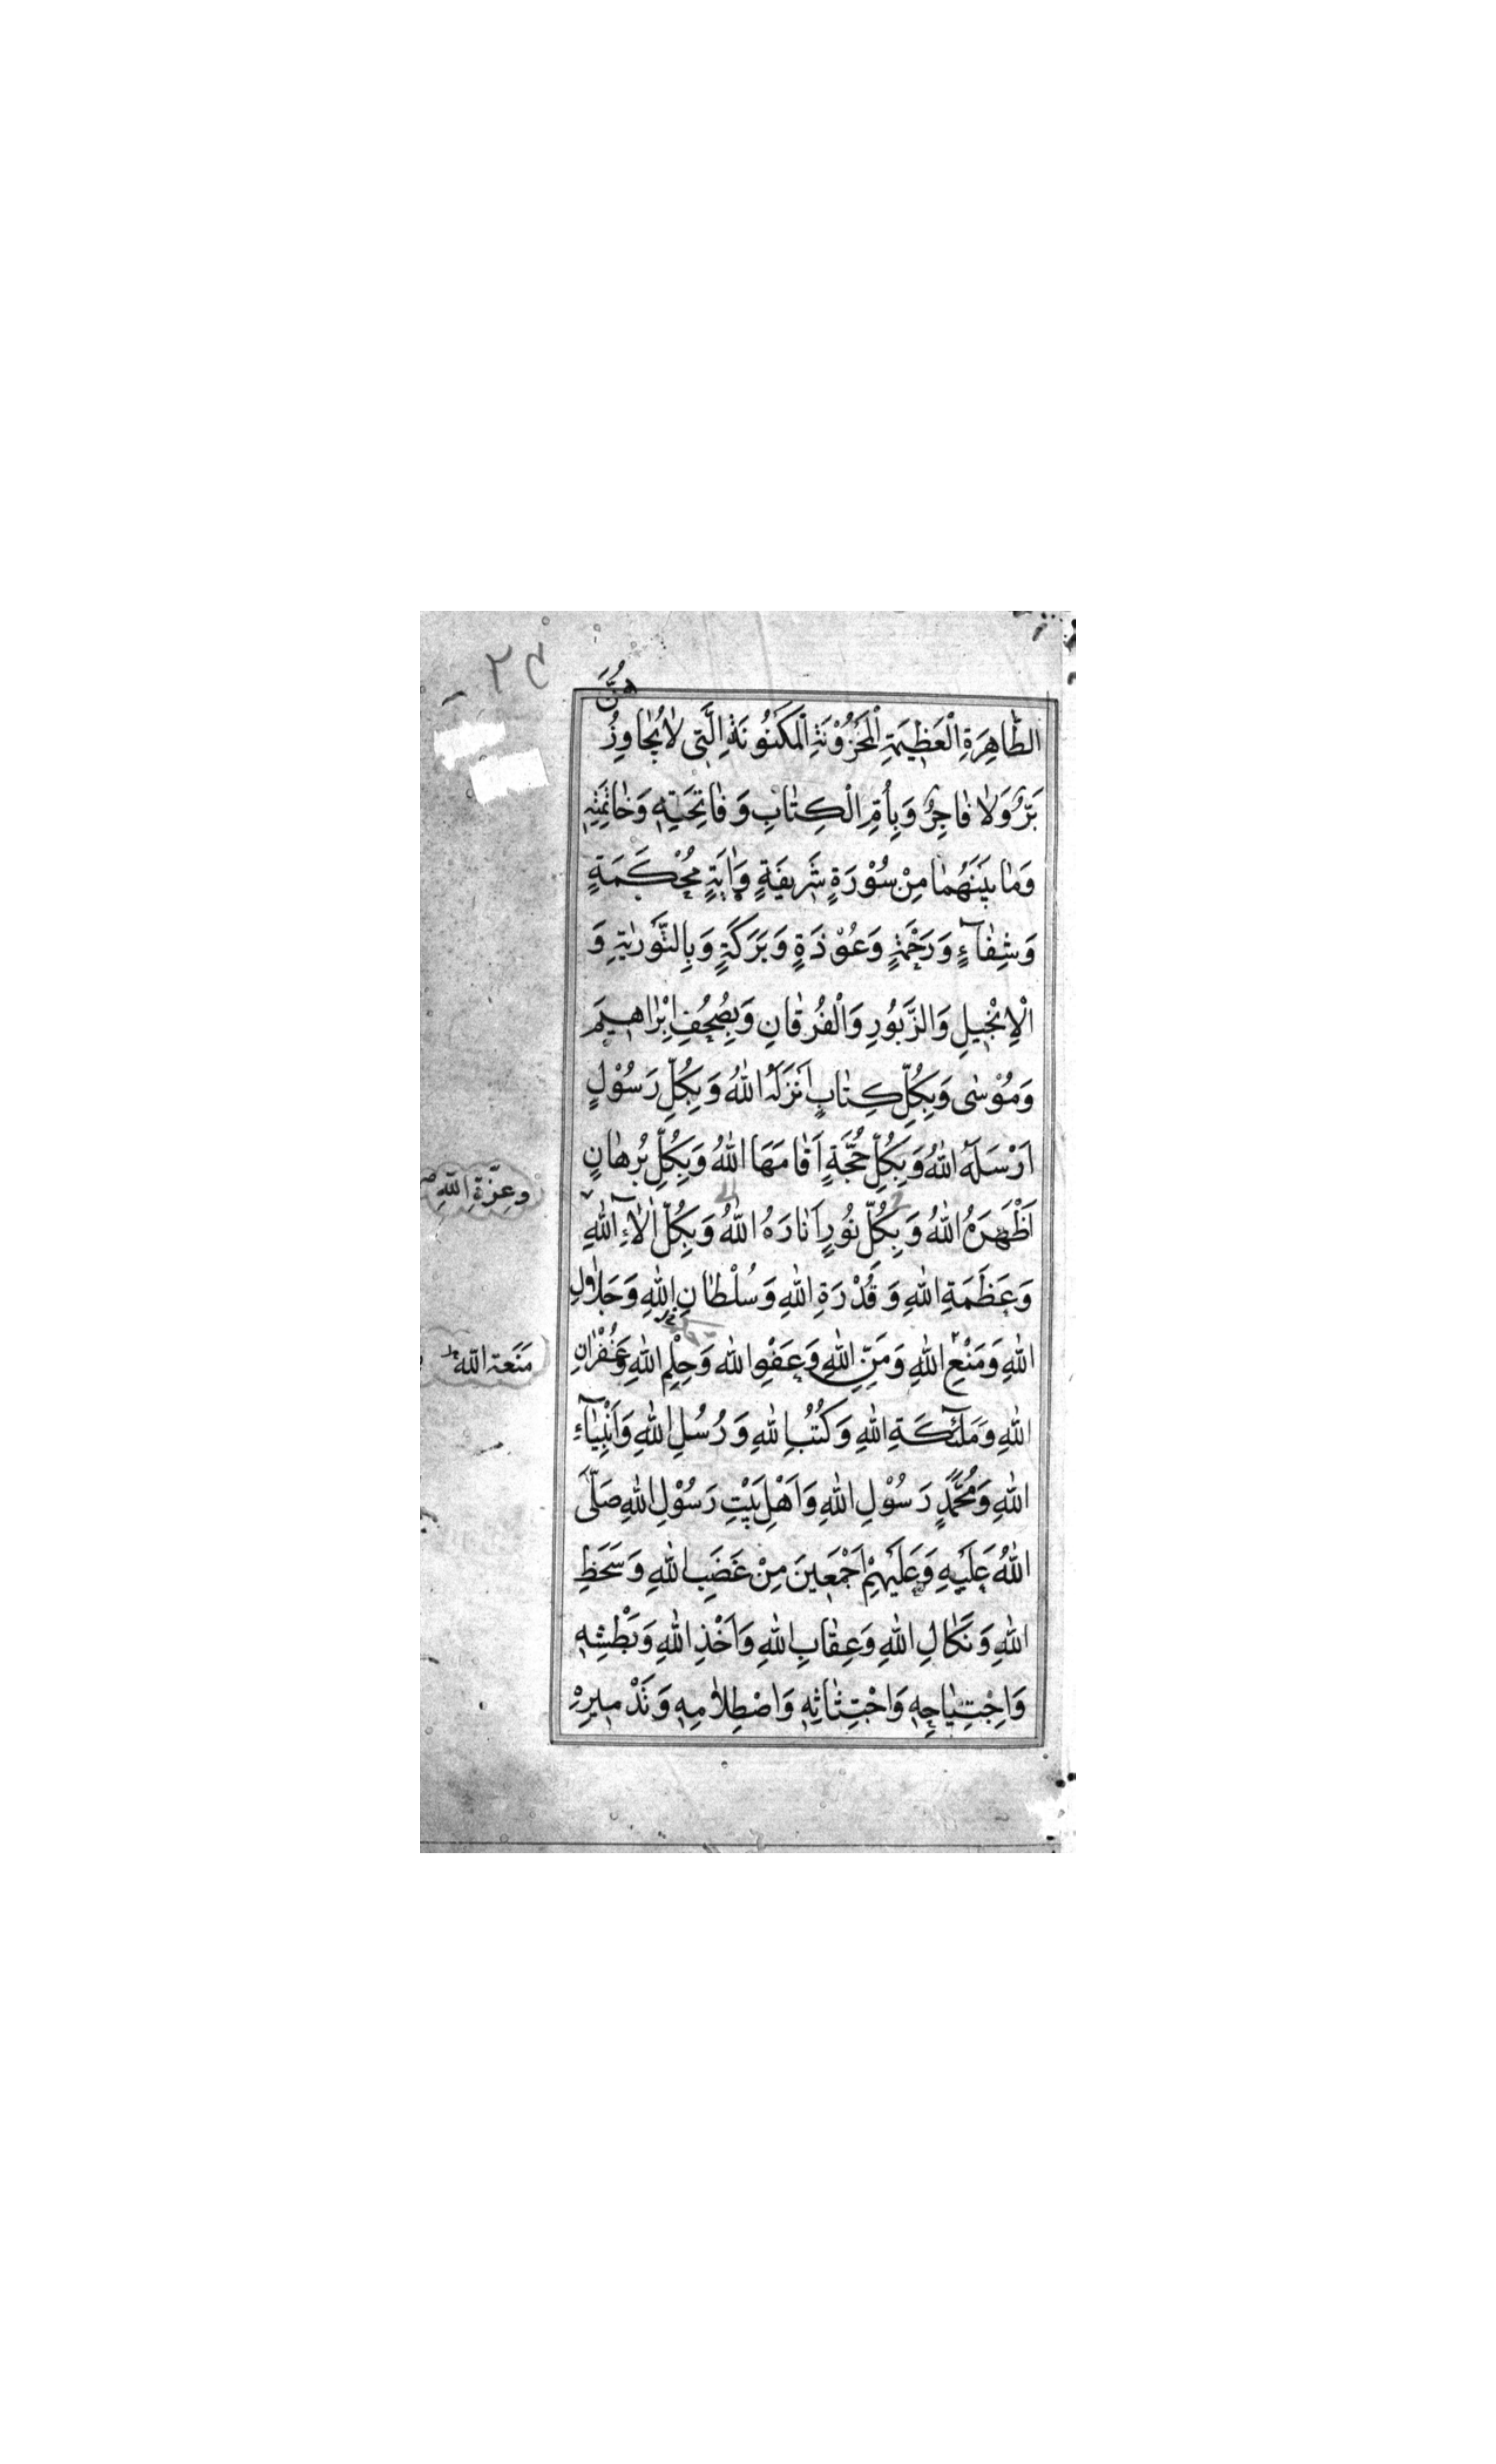 هُنَّ
الطَّاهِرَةِ الْعَظِيمَةِ الْمَخْزُوْنَةِ الْمَكْنُونَةِ الَّتِى لَا يُجَاوِزُ
بَرٌّ وَلَا فَاجِرٌ وَبِاُمِّ الْكِتَابِ وَفَاتِحَتِهِ وَخَاتِمَتِهِ
وَمَا بَيْنَهُمَا مِنْ سُوْرَةٍ شَرِيفَةٍ وَاٰيَةٍ مُحْكَمَةٍ
وَشِفَآءٍ وَرَحْمَةٍ وَعُوْذَةٍ وَبَرَكَةٍ وَبِالتَّوْرٰيةِ وَ
الْاِنْجِيلِ وَالزَّبُورِ وَالْفُرْقَانِ وَبِصُحُفِ اِبْرَاهِيمَ
وَمُوْسٰى وَبِكُلِّ كِتَابٍ اَنْزَلَهُ اللّٰهُ وَبِكُلِّ رَسُوْلٍ
اَرْسَلَهُ اللّٰهُ وَبِكُلِّ حُجَّةٍ اَقَامَهَا اللّٰهُ وَبِكُلِّ بُرْهَانٍ
اَظْهَرَهُ اللّٰهُ وَبِكُلِّ نُورٍ اَنَارَهُ اللّٰهُ وَبِكُلِّ اٰلَآءِ اللّٰهِ
وعِزَّةِ اللّٰهِ
وَعَظَمَةِ اللّٰهِ وَقُدْرَةِ اللّٰهِ وَسُلْطَانِ اللّٰهِ وَجَلَالِ
اللّٰهِ وَمَنْعِ اللّٰهِ وَمَنِّ اللّٰهِ وَعَفْوِ اللّٰهِ وَحِلْمِ اللّٰهِ وَغُفْرَانِ
مَنَعَةِ اللّٰهِ
اللّٰهِ وَمَلٰٓئِكَةِ اللّٰهِ وَكُتُبِ اللّٰهِ وَرُسُلِ اللّٰهِ وَاَنْبِيَآءِ
اللّٰهِ وَمُحَمَّدٍ رَسُوْلِ اللّٰهِ وَاَهْلِ بَيْتِ رَسُوْلِ اللّٰهِ صَلَّى
اللّٰهُ عَلَيْهِ وَعَلَيْهِمْ اَجْمَعِينَ مِنْ غَضَبِ اللّٰهِ وَسَخَطِ
اللّٰهِ وَنَكَالِ اللّٰهِ وَعِقَابِ اللّٰهِ وَاَخْذِ اللّٰهِ وَبَطْشِهِ
وَاجْتِيَاحِهِ وَاجْتِثَاثِهِ وَاصْطِلَامِهِ وَتَدْمِيرِهْ